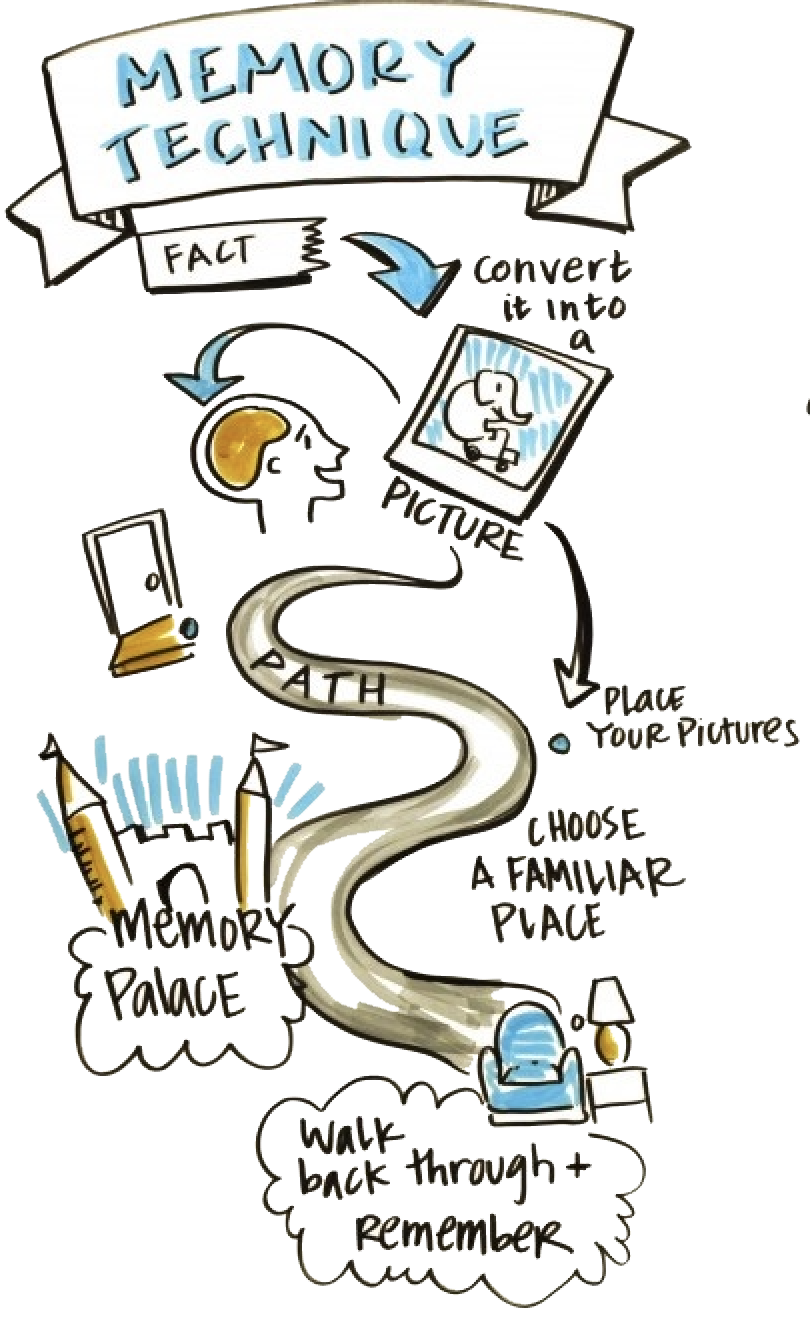 MEMORY
TECHNIQUE
FACT
convert
it into
a
PICTURE
PATH
PLACE
YOUR PICTURES
CHOOSE
A FAMILIAR
PLACE
MEMORY
PALACE
Walk
back through +
Remember